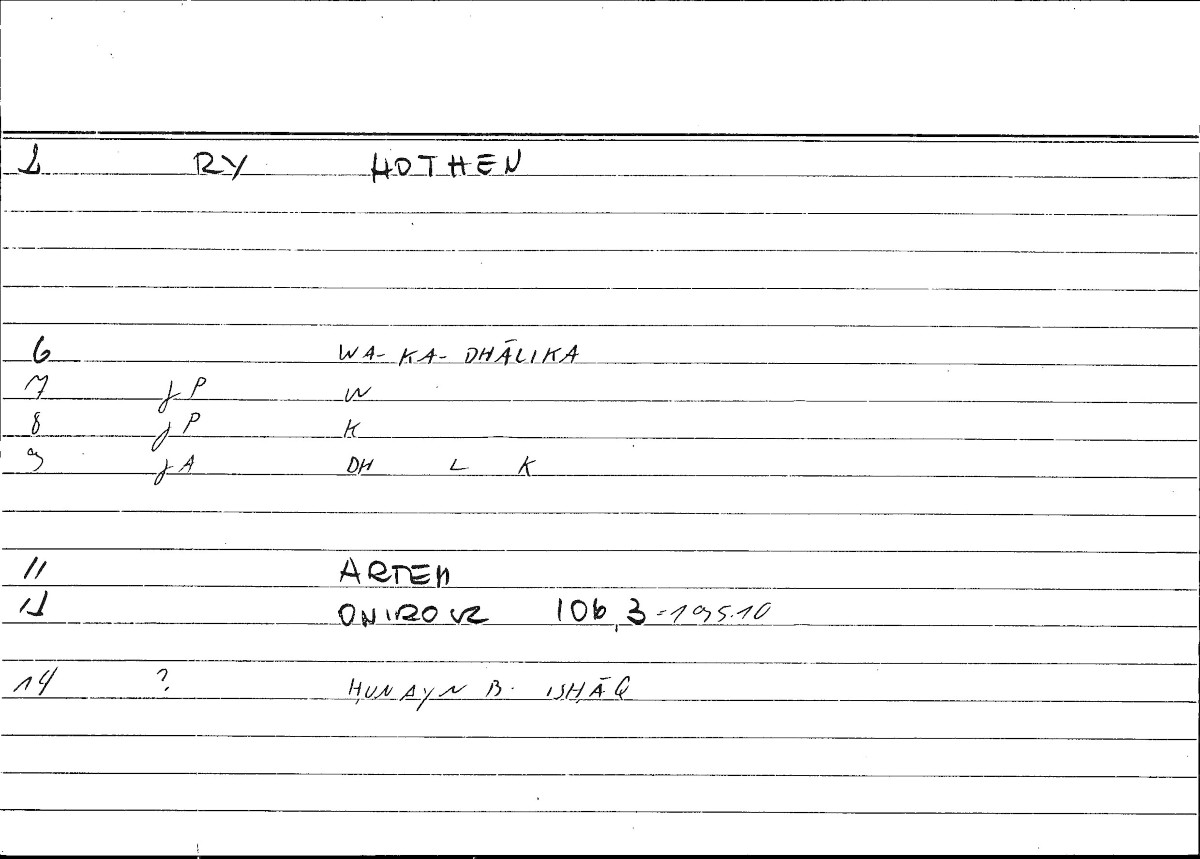 1 RY HOTHEN
6 WA-KA-DHĀLIKA
7 jP W
8 jP K
9 jA DH L K
11 ARTEM
12 ONIROCR 106,3 = 195.10
14 ? ḤUNAYN B. ISḤĀQ